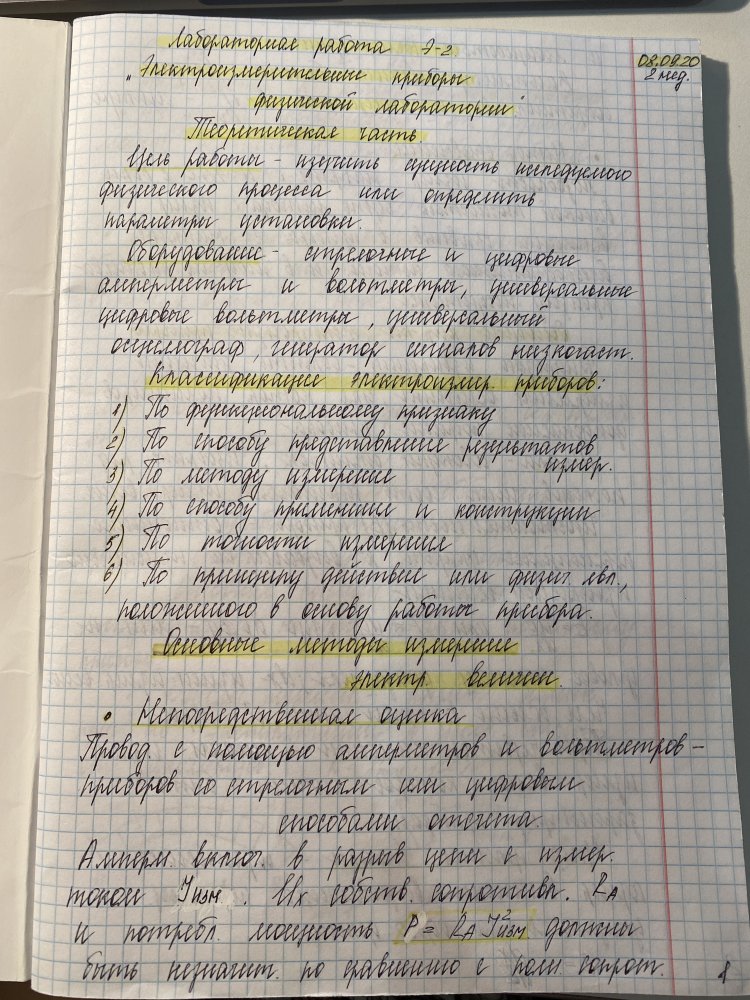 Лабораторная работа Э-2
08.09.20
2 нед.
„Электроизмерительные приборы
физической лаборатории"
Теоретическая часть.
Цель работы - изучить сущность исследуемого
физического процесса или определить
параметры установки.
Оборудование - стрелочные и цифровые
амперметры и вольтметры, универсальные
цифровые вольтметры, универсальный
осциллограф, генератор сигналов низкочаст.
Классификация электроизмер. приборов:
1) По функциональному признаку
2) По способу представления результатов
измер.
3) По методу измерения
4) По способу применения и конструкции
5) По точности измерения
6) По принципу действия или физич. явл.,
положенного в основу работы прибора.
Основные методы измерения
электр. величин.
• Непосредственная оценка
Провод. с помощью амперметров и вольтметров -
приборов со стрелочным или цифровым
способами отсчета.
Амперм. включ. в разрыв цепи с измер.
током Iизм. Их собств. сопротивл. RA
и потребл. мощность P = RA I²изм должны
быть незначит. по сравнению с полн. сопрот.
1